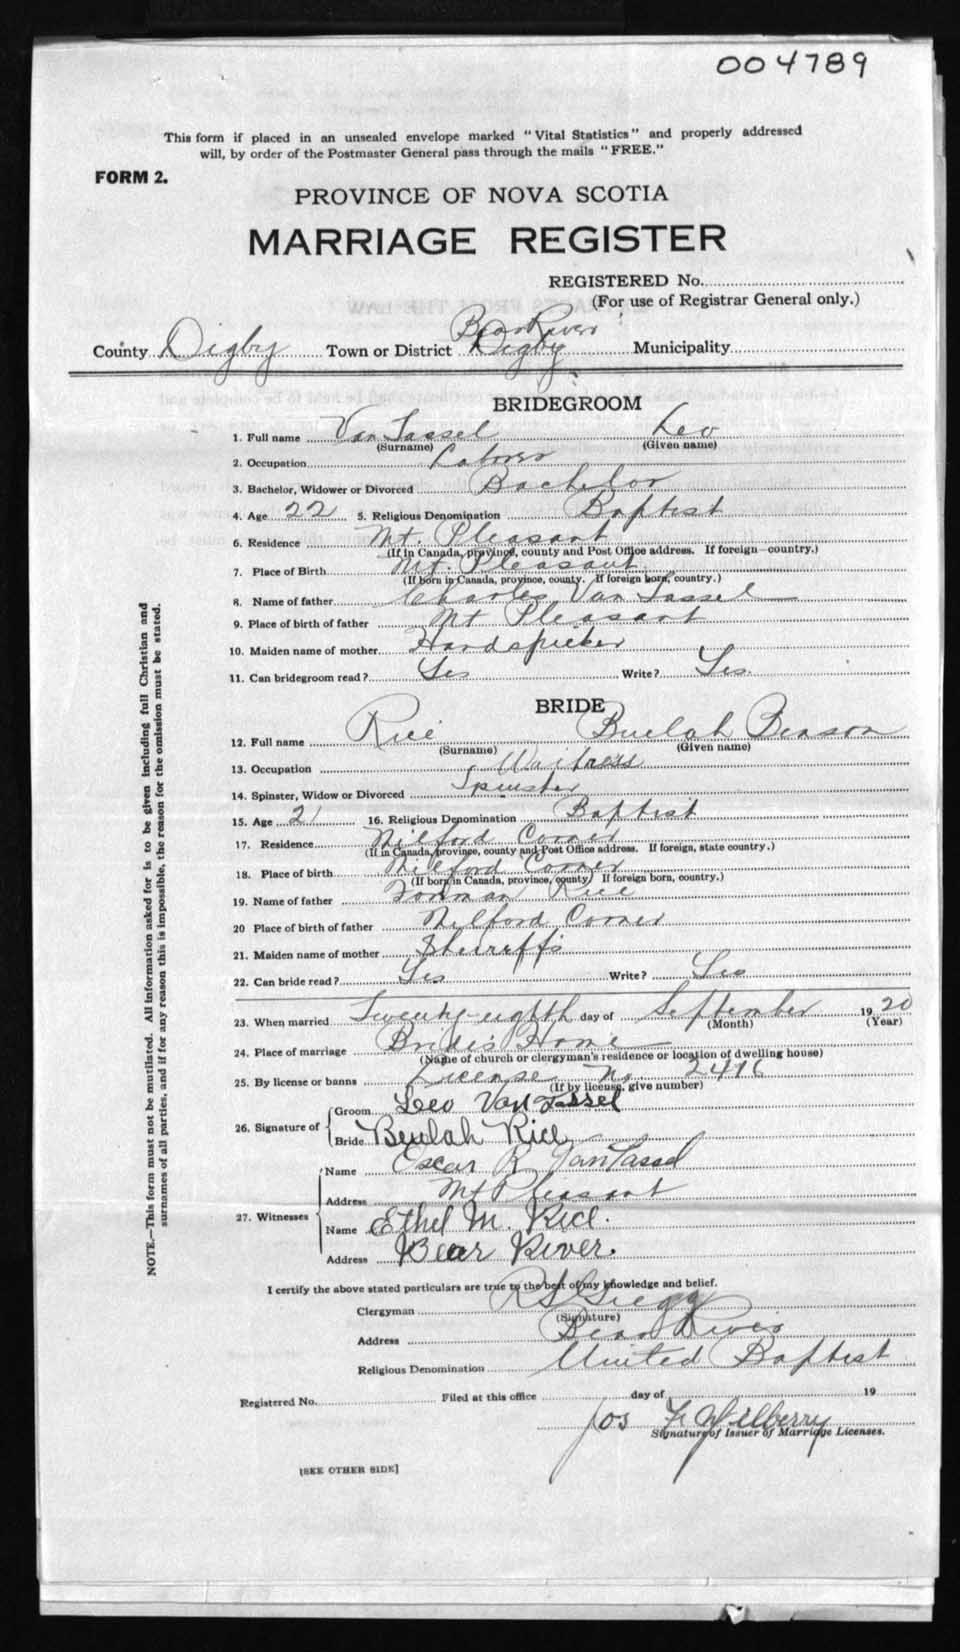 004789
This form if placed in an unsealed envelope marked "Vital Statistics" and properly addressed
will, by order of the Postmaster General pass through the mails "FREE."
FORM 2.
PROVINCE OF NOVA SCOTIA
MARRIAGE REGISTER
REGISTERED No.
(For use of Registrar General only.)
Bear River
County Digby Town or District Digby Municipality
BRIDEGROOM
1. Full name Van Tassel Leo
(Surname) (Given name)
2. Occupation Laborer
3. Bachelor, Widower or Divorced Bachelor
4. Age 22 5. Religious Denomination Baptist
6. Residence Mt. Pleasant
(If in Canada, province, county and Post Office address. If foreign—country.)
7. Place of Birth Mt. Pleasant
(If born in Canada, province, county. If foreign born, country.)
8. Name of father Charles Van Tassel
9. Place of birth of father Mt Pleasant
10. Maiden name of mother
11. Can bridegroom read? Yes Write? Yes
BRIDE
12. Full name Rice Beulah Benson
(Surname) (Given name)
13. Occupation Waitress
14. Spinster, Widow or Divorced Spinster
15. Age 21 16. Religious Denomination Baptist
17. Residence Milford Corner
(If in Canada, province, county and Post Office address. If foreign, state country.)
18. Place of birth Milford Corner
(If born in Canada, province, county) If foreign born, country.)
19. Name of father Forman Rice
20 Place of birth of father Milford Corner
21. Maiden name of mother
22. Can bride read? Yes Write? Yes
23. When married Twenty-eighth day of September 1920
(Month) (Year)
24. Place of marriage Bride's Home
(Name of church or clergyman's residence or location of dwelling house)
25. By license or banns License No 2416
(If by license, give number)
26. Signature of Groom Leo Van Tassel
Bride Beulah Rice
27. Witnesses Name Oscar R. Van Tassel
Address Mt Pleasant
Name Ethel M. Rice.
Address Bear River.
I certify the above stated particulars are true to the best of my knowledge and belief.
Clergyman
(Signature)
Address Bear River
Religious Denomination United Baptist
Registered No. Filed at this office day of 19
Jos F.
Signature of Issuer of Marriage Licenses.
[SEE OTHER SIDE]
NOTE.—This form must not be mutilated. All information asked for is to be given including full Christian and
surnames of all parties, and if for any reason this is impossible, the reason for the omission must be stated.